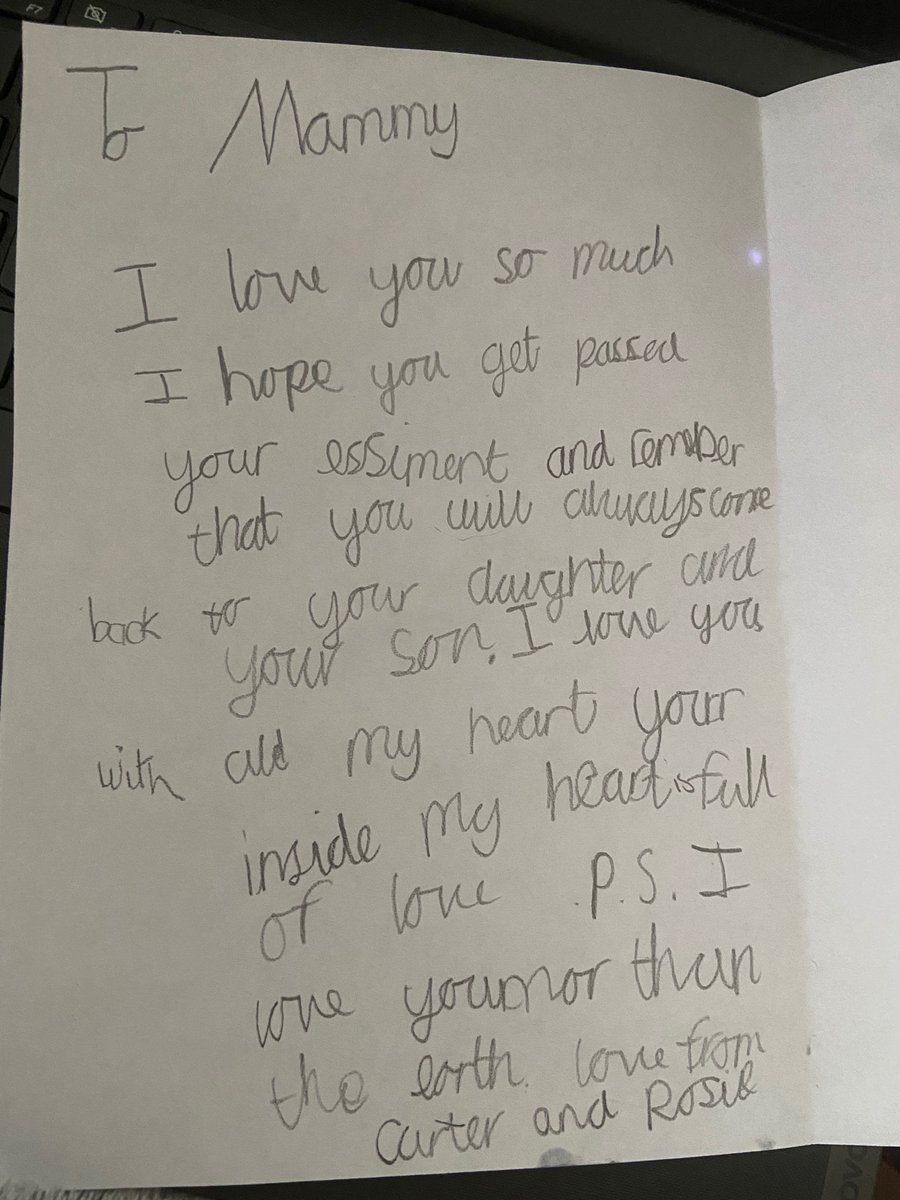 To Mammy
I love you so much
I hope you get passed
your essiment and remeber
that you will always come
back to your daughter and
your son. I love you
with all my heart your
inside my heart is full
of love P.S. I
love you mor than
the earth. love from
Carter and Rosie
F7